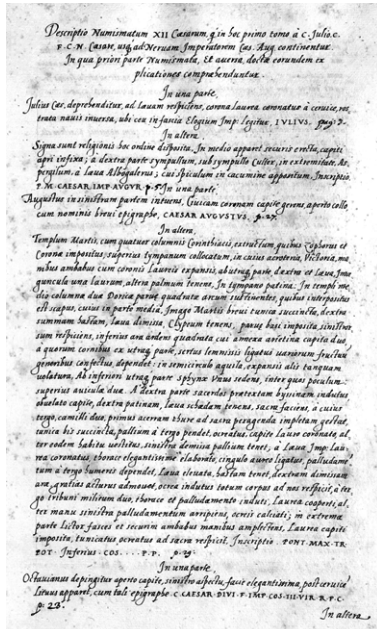 Descriptio Numismatum XII Cæsarum, q̃ in hoc primo tomo à C. Julio. C.
F. C. N. CÆSARE, usq̃ ad Nervam Imperatorem Cæs. Aug. continentur.
In qua priori parte Numismata, Et auersa, doctæ eorundem ex
plicationes compræhenduntur.
In una parte.
Julius Cæs. deprehenditur, ad læuam respiciens, corona laurea coronatus à ceruice, ros
trata nauis inuersa, ubi cea in fascia Elogium Imp: legitur, IVLIVS.
In altera.
Signa sunt religionis hoc ordine disposita. In medio apparet securis erecta, capiti
apri infixa; a dextra parte sympullum, sub sympullo Culter, in extremitate, As,
pergilum, à læua Albogalerus; cui spiculum in cucumine appositum. Inscriptio.
P. M. CAESAR IMP AVGVR p. 5. In una parte.
Augustus in sinistram partem intuens, Ciuicam coronam capite gerens, aperto collo
cum nominis breui epigraphe, CAESAR AVGVSTVS. p. 27.
In altera.
Templum Martis, cum quatuor columnis Corinthiacis, extructum, quibus Zophorus et
Corona impositus; superius tympanum collocatum, in cuius acroteria, Victoria, ma,
nibus ambabus cum coronis Laureis expansis, ab utraq̃ parte, dextra et Læua, Ima,
guncula una laurum, altera palmam tenens, In tympano patina: In templi me,
dio columna duæ Doricæ paruæ quadrata arcum sustinentes, quibus interpositus
est scapus, cuius in parte media, Imago Martis breui tunica succincta, dextra
summam hastam, læua dimissa, Clypeum tenens, paruæ basi imposita, sinistror,
sum respiciens, inferius ara ardens quadrata cui annexa arietina capita duo,
a quorum cornibus ex utraq̃ parte, sertus lemniscis ligatus uariorum fructuũ
generibus confectus, dependet: in semicirculo aquila, expansis alis tanquam
uolatura, Ab inferiori utraq̃ parte sphynx Vnus sedens, inter quos poculum
superius auiculæ duæ. A dextra parte sacerdos prætextam byssinam indutus
obuelato capite, dextra patinam, læua schædam tenens, sacra faciens, à cuius
tergo, camilli duo, primus acerram thure ad sacra peragenda impletam gestat,
tunica bis succincta, pallium à tergo pendet, ocreatus, capite Lauro coronato, al,
ter eodem habitu uestitus, sinistra demissa pallium tenet, à Læua Imp: Lau,
rea coronatus, thorace elegantissimè elaborato, cingulo aureo ligatus, palludame,
tum à tergo humeris dependet, Læua eleuata, hastam tenet, dextram dimissam
aræ, gratias acturus admouet, ocrea indutus totum corpus ad nos respicit, à ter,
go tribuni militum duo, thorace et palludamento induti, Laurea cooperti, al,
ter manu sinistra palludamentum arripiens, ocreis calciati; in extrema
parte Lictor, fasces et securim ambabus manibus amplectens, Laurea capiti
imposita, tunicatus ocreatus ad sacra respicit. Inscriptio. PONT. MAX. TR.
POT. Inferius COS. . . . P. P. p. 29.
In una parte.
Octauianus depingitur aperto capite, sinistro aspectu, facie elegantissima, post ceruicẽ
Lituus apparet, cum tali epigraphe C. CAESAR DIVI F. IMP COS. III. VIR R. P. C.
p. 28.
In altera